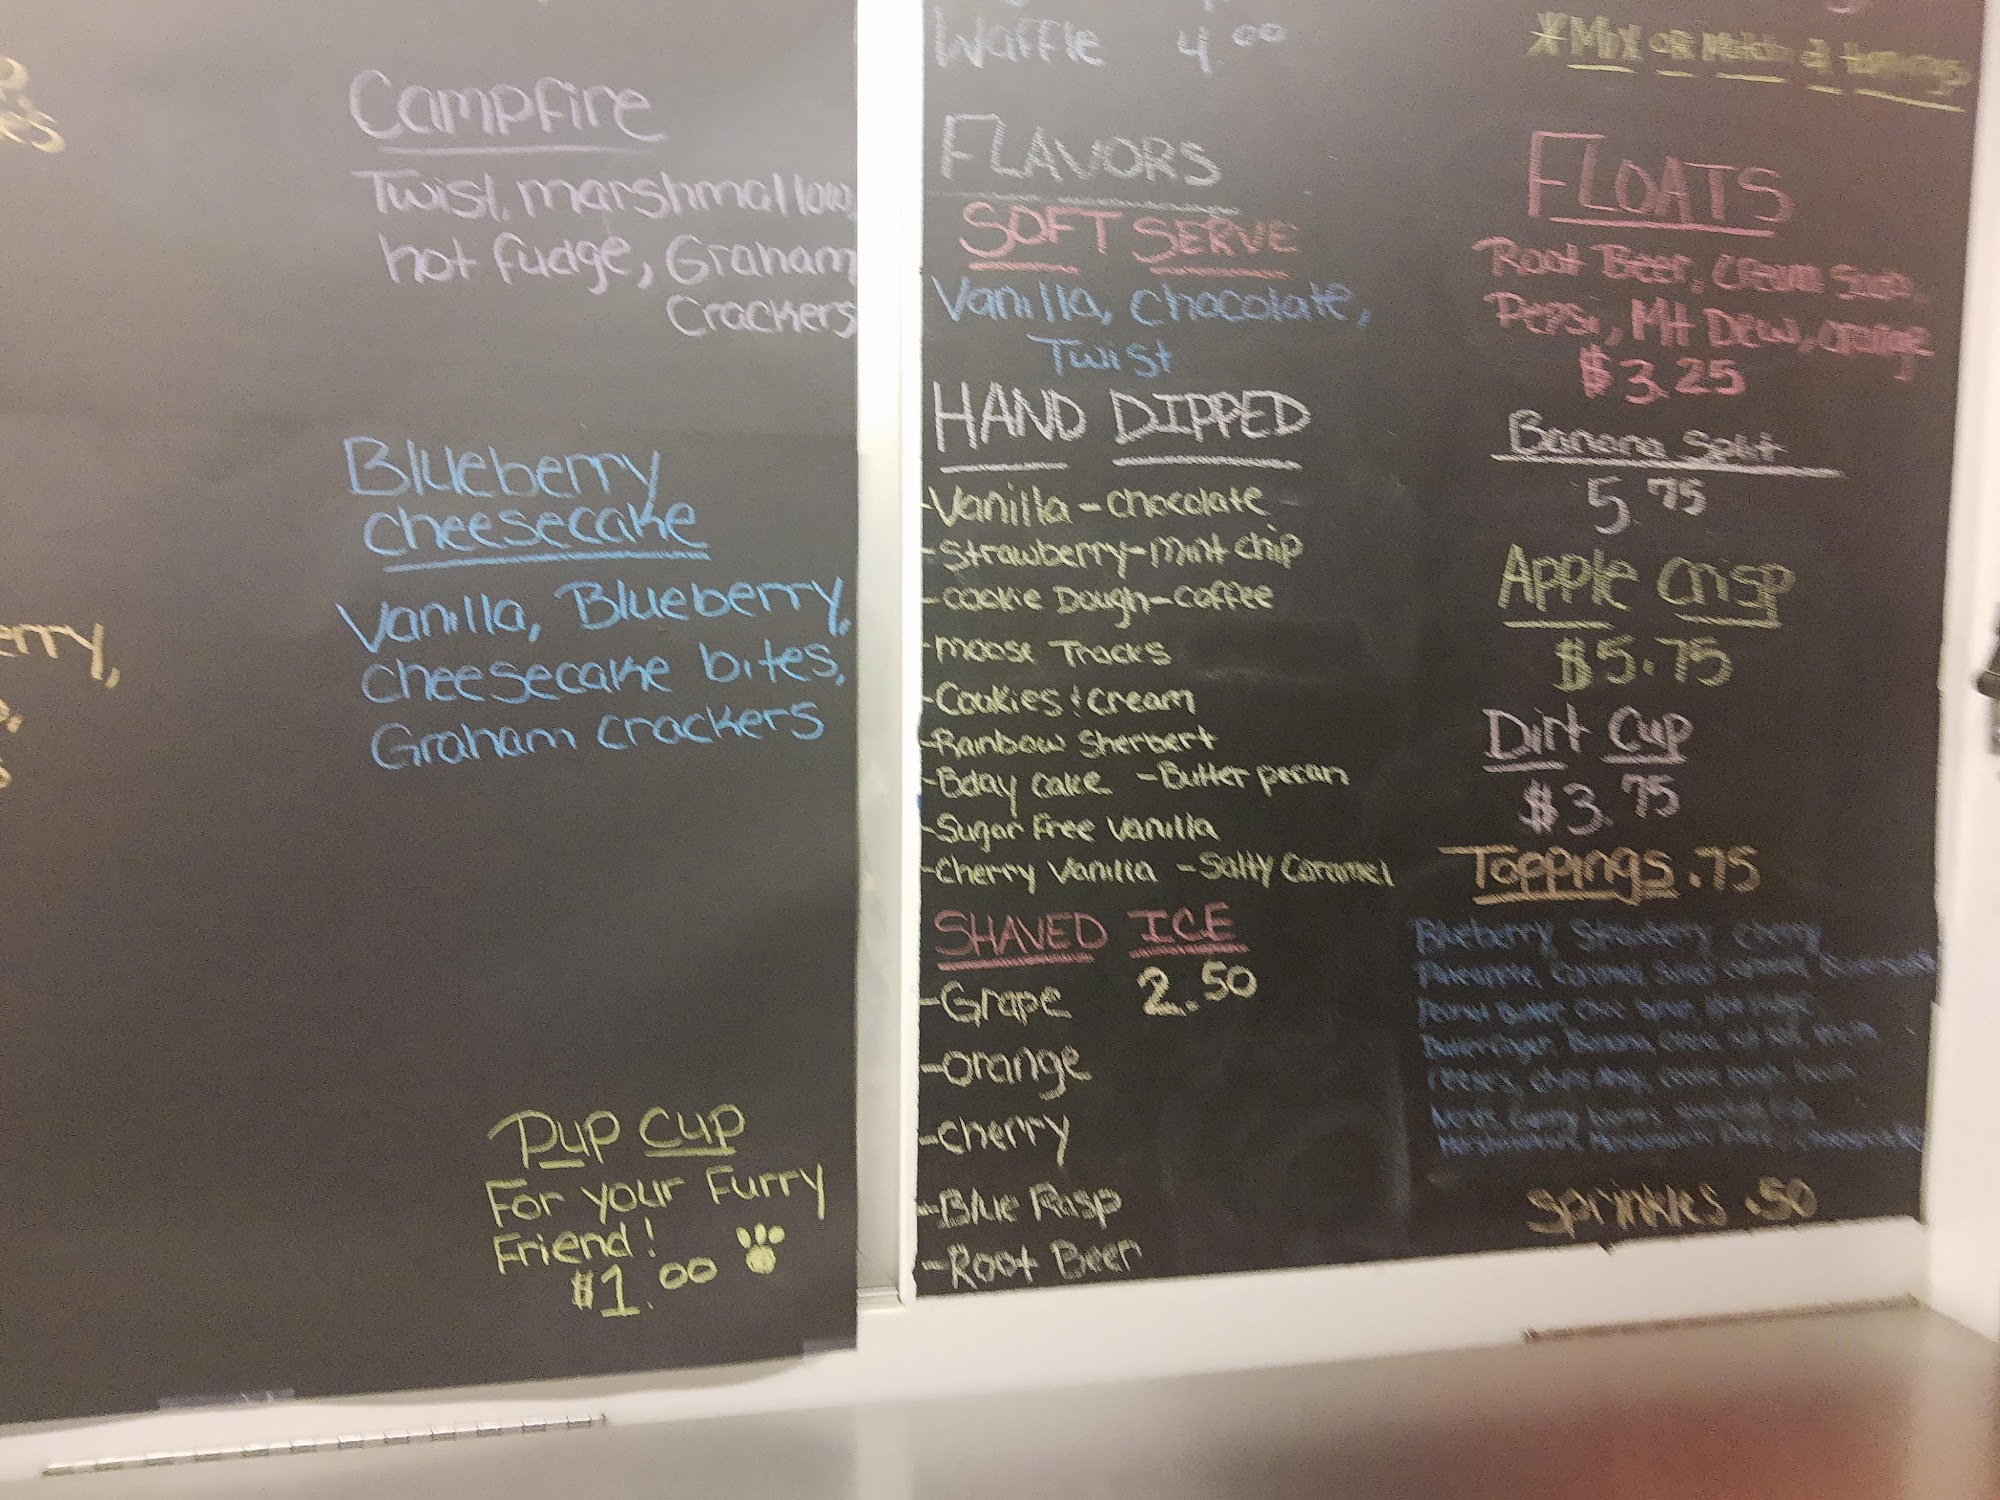 es
erry,
Campfire
Twist, marshmallow,
hot fudge, Graham
Crackers
Blueberry
cheesecake
Vanilla, Blueberry,
cheesecake bites,
Graham crackers
Pup Cup
For your Furry
Friend!
$1.00
Waffle 4.00
FLAVORS
SOFT SERVE
Vanilla, Chocolate,
Twist
HAND DIPPED
-Vanilla -chocolate
-Strawberry-mint chip
-cookie Dough-coffee
-moose Tracks
-Cookies & cream
-Rainbow Sherbert
-Bday cake -Butter pecan
-Sugar Free vanilla
-Cherry Vanilla -Salty Caramel
SHAVED ICE
-Grape 2.50
-orange
-cherry
-Blue Rasp
-Root Beer
*Mix or Match 2 toppings
FLOATS
Root Beer, cream soda,
Pepsi, Mt Dew, orange
$3.25
Banana Split
5.75
Apple Crisp
$5.75
Dirt Cup
$3.75
Toppings .75
Blueberry, Strawberry, cherry
Pineapple, Caramel, Salted caramel,
Peanut Butter, choc syrup, Hot Fudge,
Butterfinger, Banana,
reese's, cookie dough,
Nerds, Gummy worms,
Sprinkles .50